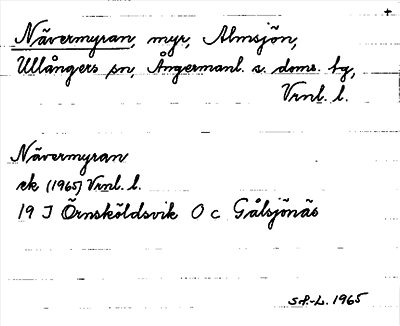 Nävermyran, myr, Almsjön,
Ullångers sn, Ångermanl. s. doms. tg,
Vrnl. l.
Nävermyran
ek (1965) Vrnl. l.
19 J Örnsköldsvik 0 c Gålsjönäs
S.P.-L. 1965